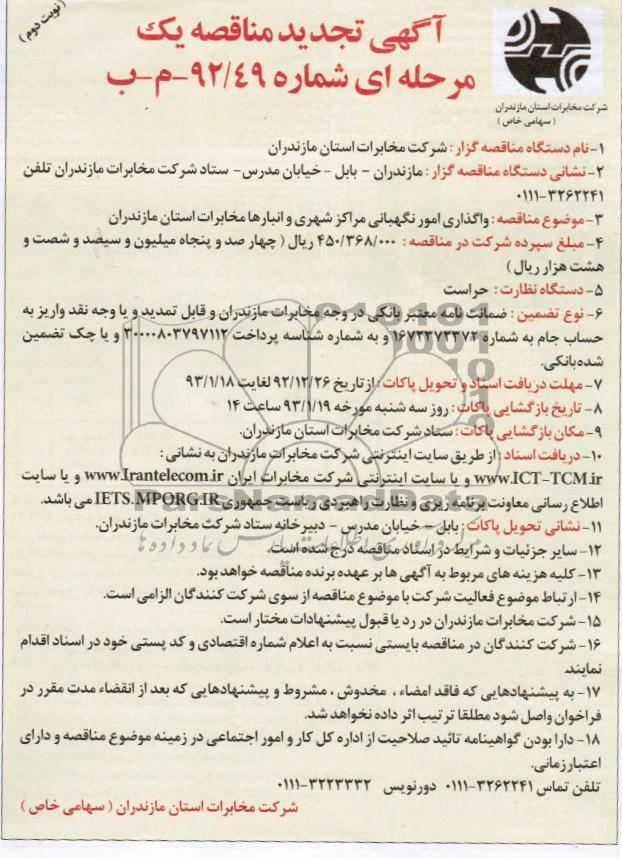 (نوبت دوم)
آگهی تجدید مناقصه یک
مرحله ای شماره ۹۲/۴۹-م-ب
شرکت مخابرات استان مازندران
( سهامی خاص )
۱- نام دستگاه مناقصه گزار : شرکت مخابرات استان مازندران
۲- نشانی دستگاه مناقصه گزار : مازندران - بابل - خیابان مدرس- ستاد شرکت مخابرات مازندران تلفن
۰۱۱۱-۳۲۶۲۲۴۱
۳- موضوع مناقصه : واگذاری امور نگهبانی مراکز شهری و انبارها مخابرات استان مازندران
۴- مبلغ سپرده شرکت در مناقصه : ۴۵۰/۳۶۸/۰۰۰ ریال ( چهار صد و پنجاه میلیون و سیصد و شصت و
هشت هزار ریال )
۵- دستگاه نظارت : حراست
۶- نوع تضمین : ضمانت نامه معتبر بانکی در وجه مخابرات مازندران و قابل تمدید و یا وجه نقد واریز به
حساب جام به شماره ۱۶۷۳۲۷۳۳۷۴ و به شماره شناسه پرداخت ۳۰۰۰۰۸۰۳۷۹۷۱۱۲ و یا چک تضمین
شده بانکی.
۷- مهلت دریافت اسناد و تحویل پاکات : از تاریخ ۹۲/۱۲/۲۶ لغایت ۹۳/۱/۱۸
۸- تاریخ بازگشایی پاکات : روز سه شنبه مورخه ۹۳/۱/۱۹ ساعت ۱۴
۹- مکان بازگشایی پاکات : ستاد شرکت مخابرات استان مازندران.
۱۰- دریافت اسناد : از طریق سایت اینترنتی شرکت مخابرات مازندران به نشانی :
www.ICT-TCM.ir و یا سایت اینترنتی شرکت مخابرات ایران www.Irantelecom.ir و یا سایت
اطلاع رسانی معاونت برنامه ریزی و نظارت راهبردی ریاست جمهوری IETS.MPORG.IR می باشد.
۱۱- نشانی تحویل پاکات : بابل - خیابان مدرس - دبیرخانه ستاد شرکت مخابرات مازندران.
۱۲- سایر جزئیات و شرایط در اسناد مناقصه درج شده است.
۱۳- کلیه هزینه های مربوط به آگهی ها بر عهده برنده مناقصه خواهد بود.
۱۴- ارتباط موضوع فعالیت شرکت با موضوع مناقصه از سوی شرکت کنندگان الزامی است.
۱۵- شرکت مخابرات مازندران در رد یا قبول پیشنهادات مختار است.
۱۶- شرکت کنندگان در مناقصه بایستی نسبت به اعلام شماره اقتصادی و کد پستی خود در اسناد اقدام
نمایند
۱۷- به پیشنهادهایی که فاقد امضاء ، مخدوش ، مشروط و پیشنهادهایی که بعد از انقضاء مدت مقرر در
فراخوان واصل شود مطلقا ترتیب اثر داده نخواهد شد.
۱۸- دارا بودن گواهینامه تائید صلاحیت از اداره کل کار و امور اجتماعی در زمینه موضوع مناقصه و دارای
اعتبار زمانی.
تلفن تماس ۳۲۶۲۲۴۱-۰۱۱۱ دورنویس ۳۲۲۳۳۳۲-۰۱۱۱
شرکت مخابرات استان مازندران ( سهامی خاص )
ParsNamadData